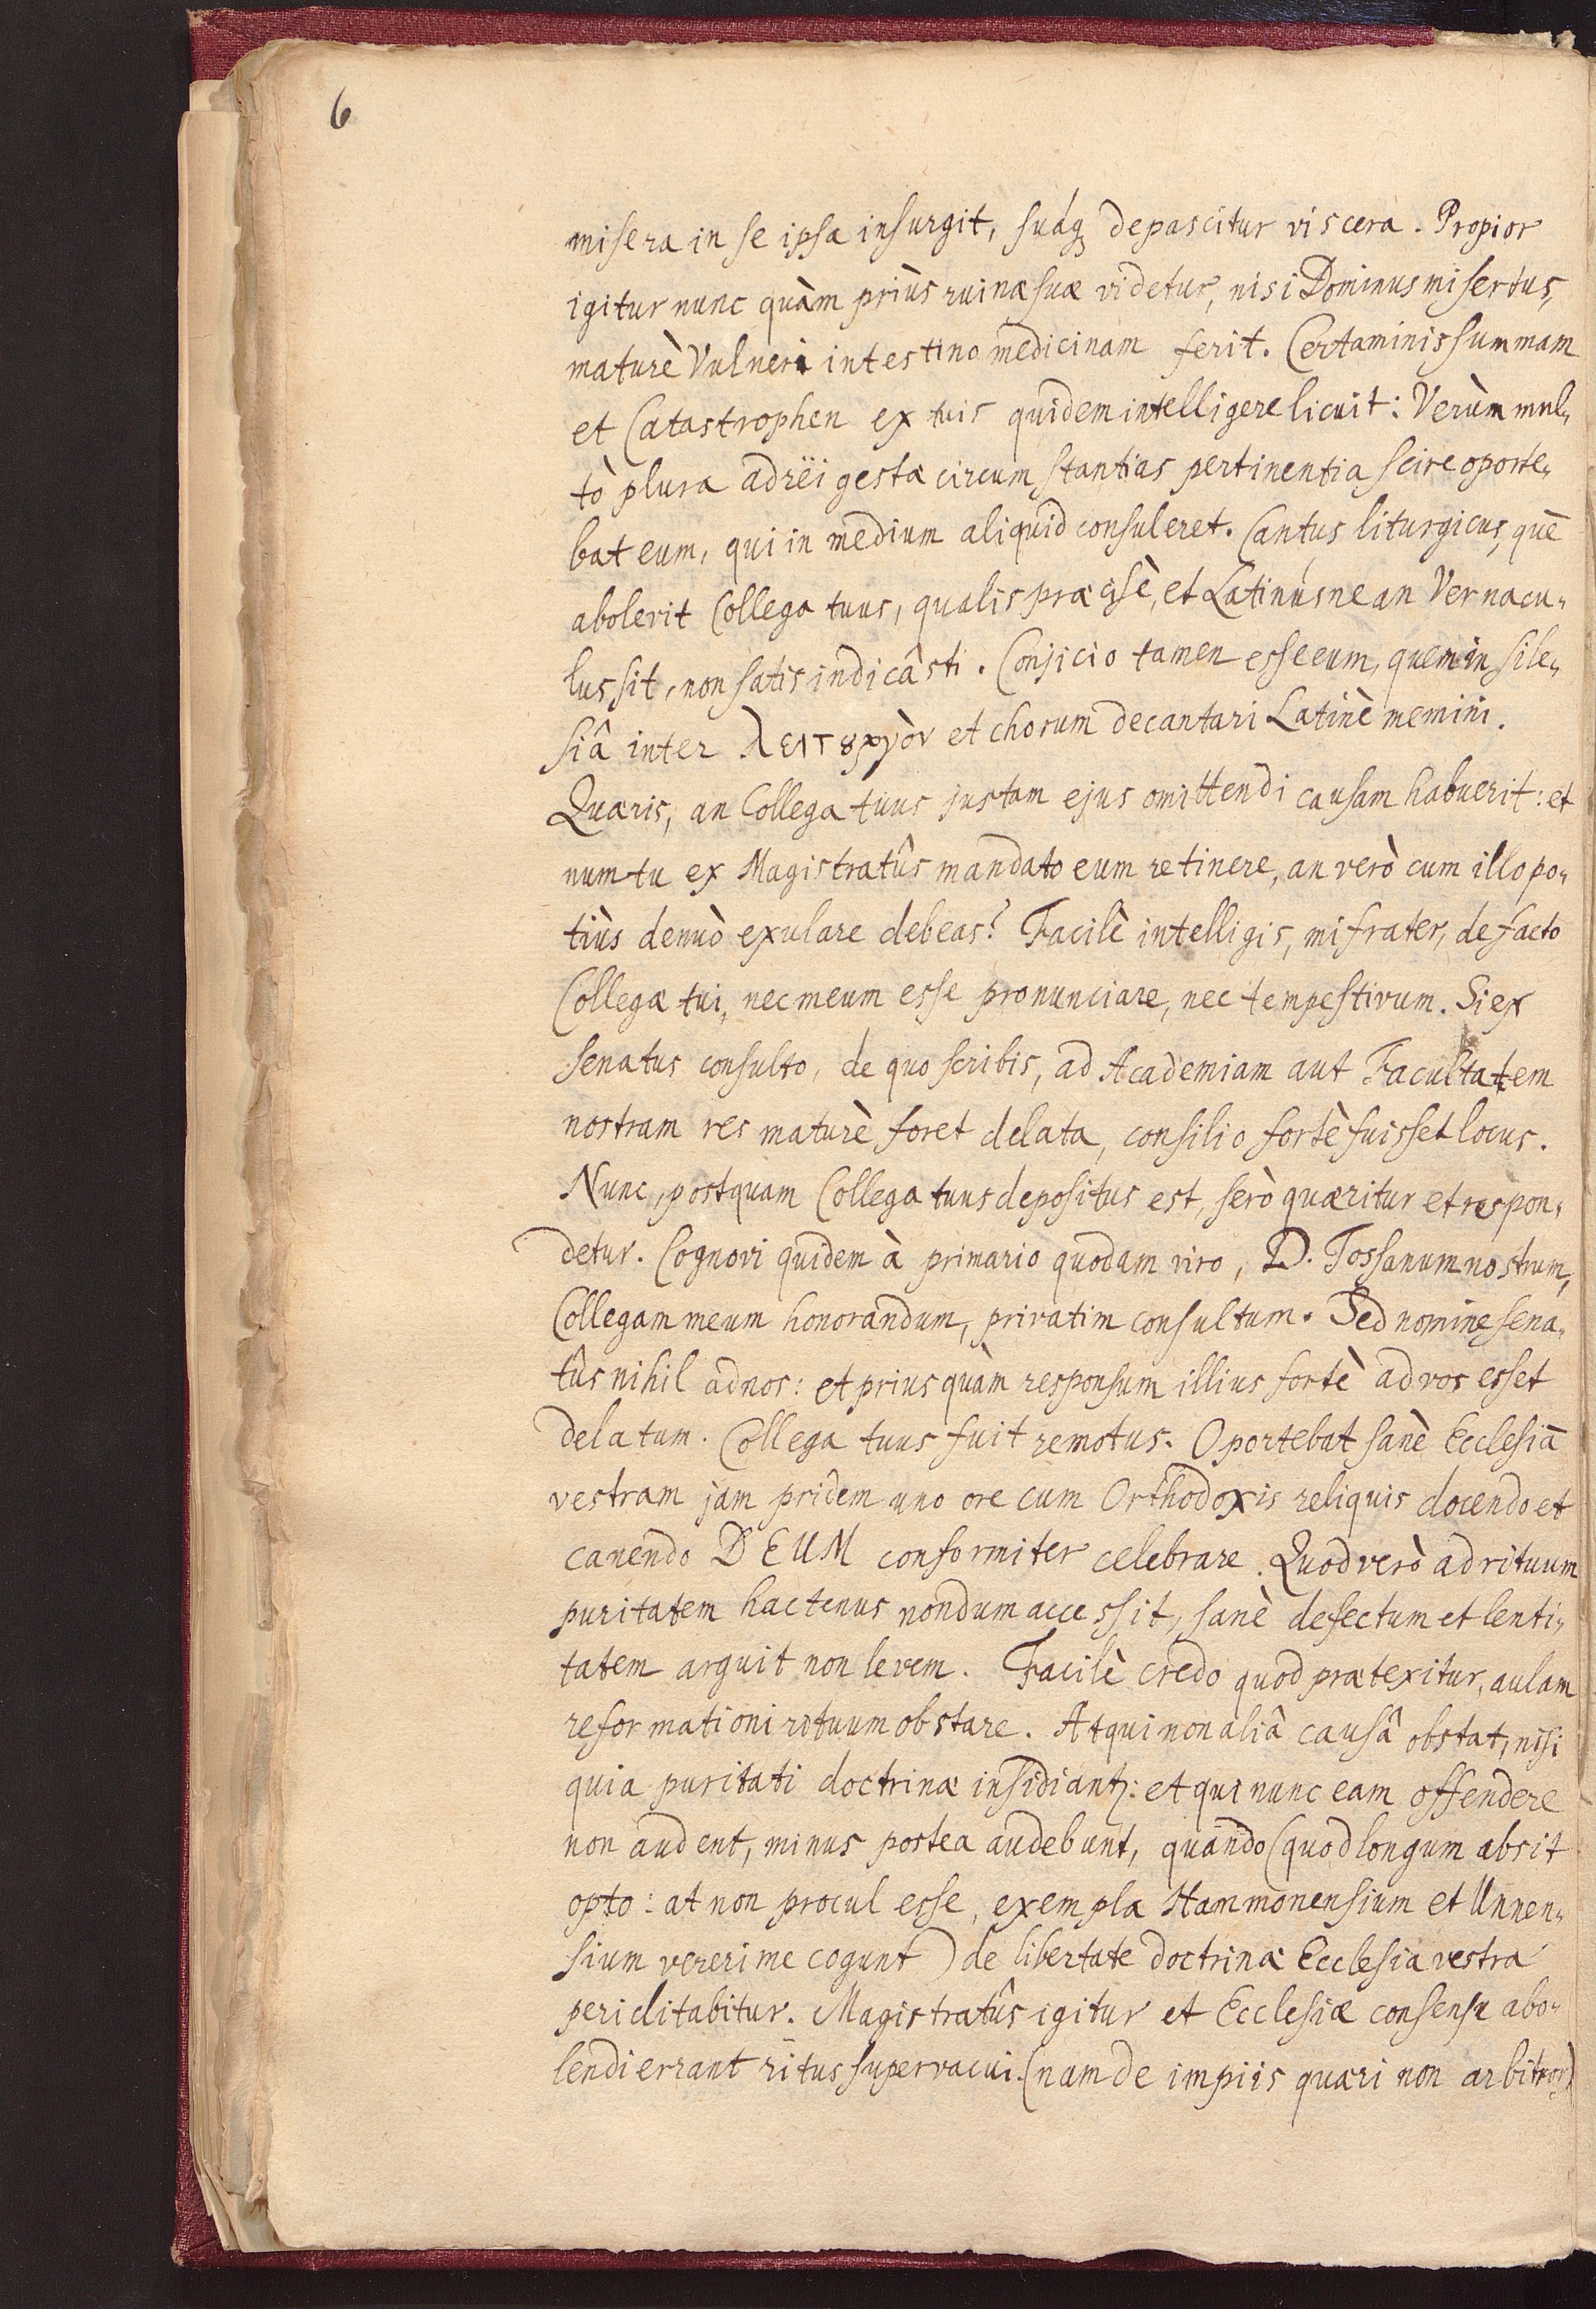 6
misera in se ipsa insurgit, suáq; depascitur viscera. Propior
igitur nunc quàm priùs ruinæ suæ videtur, nisi Dominus misertus,
maturè Vulneri intestino medicinam ferit. Certaminis summam
et Catastrophen ex tuis quidem intelligere licuit: Verùm mul„
tò plura ad rëi gestæ circumstantias pertinentia scire oporte„
bat eum, qui in medium aliquid consuleret. Cantus liturgicus, quē
abolerit Collega tuus, qualis præcisè, et Latinúsne an Vernacu„
lus sit, non satis indicâsti. Conjicio tamen esse eum, quem in Sile„
siâ inter λειτȣργὸν et chorum decantari Latinè memini.
Quæris, an Collega tuus justam ejus omittendi causam habuerit: et
num tu ex Magistratûs mandato eum retinere, an verò cum illo po„
tiùs denuò exulare debeas? Facilè intelligis, mi frater, de facto
Collegæ tui, nec meum esse pronunciare, nec tempestivum. Si ex
senatus consulto, de quo scribis, ad Academiam aut Facultatem
nostram res maturè foret delata, consilio fortè fuisset locus.
Nunc, postquam Collega tuus depositus est, serò quæritur et respon„
detur. Cognovi quidem à primario quodam viro, D. Tossanum nostrum,
Collegam meum honorandum, privatim consultum. Sed nomine sena„
tûs nihil ad nos: et priusquàm responsum illius fortè ad vos esset
delatum. Collega tuus fuit remotus. Oportebat sanè Ecclesiā
vestram jam pridem uno ore cum Orthodoxis reliquis docendo et
canendo DEUM conformiter celebrare. Quod verò ad rituum
puritatem hactenus nondum accessit, sanè defectum et lenti„
tatem arguit non levem. Facilè credo quod prætexitur, aulam
reformationi rituum obstare. Atqui non aliâ causâ obstat, nisi
quia puritati doctrinæ insidiantꝛ: et qui nunc eam offendere
non audent, minus postea audebunt, quando (quod longum absit
opto: at non procul esse, exempla Hammonensium et Unnen„
sium vereri me cogunt) de libertate doctrinæ Ecclesia vestra
periclitabitur. Magistratûs igitur et Ecclesiæ consensu abo„
lendi errant ritus supervacui. (nam de impiis quæri non arbitror)